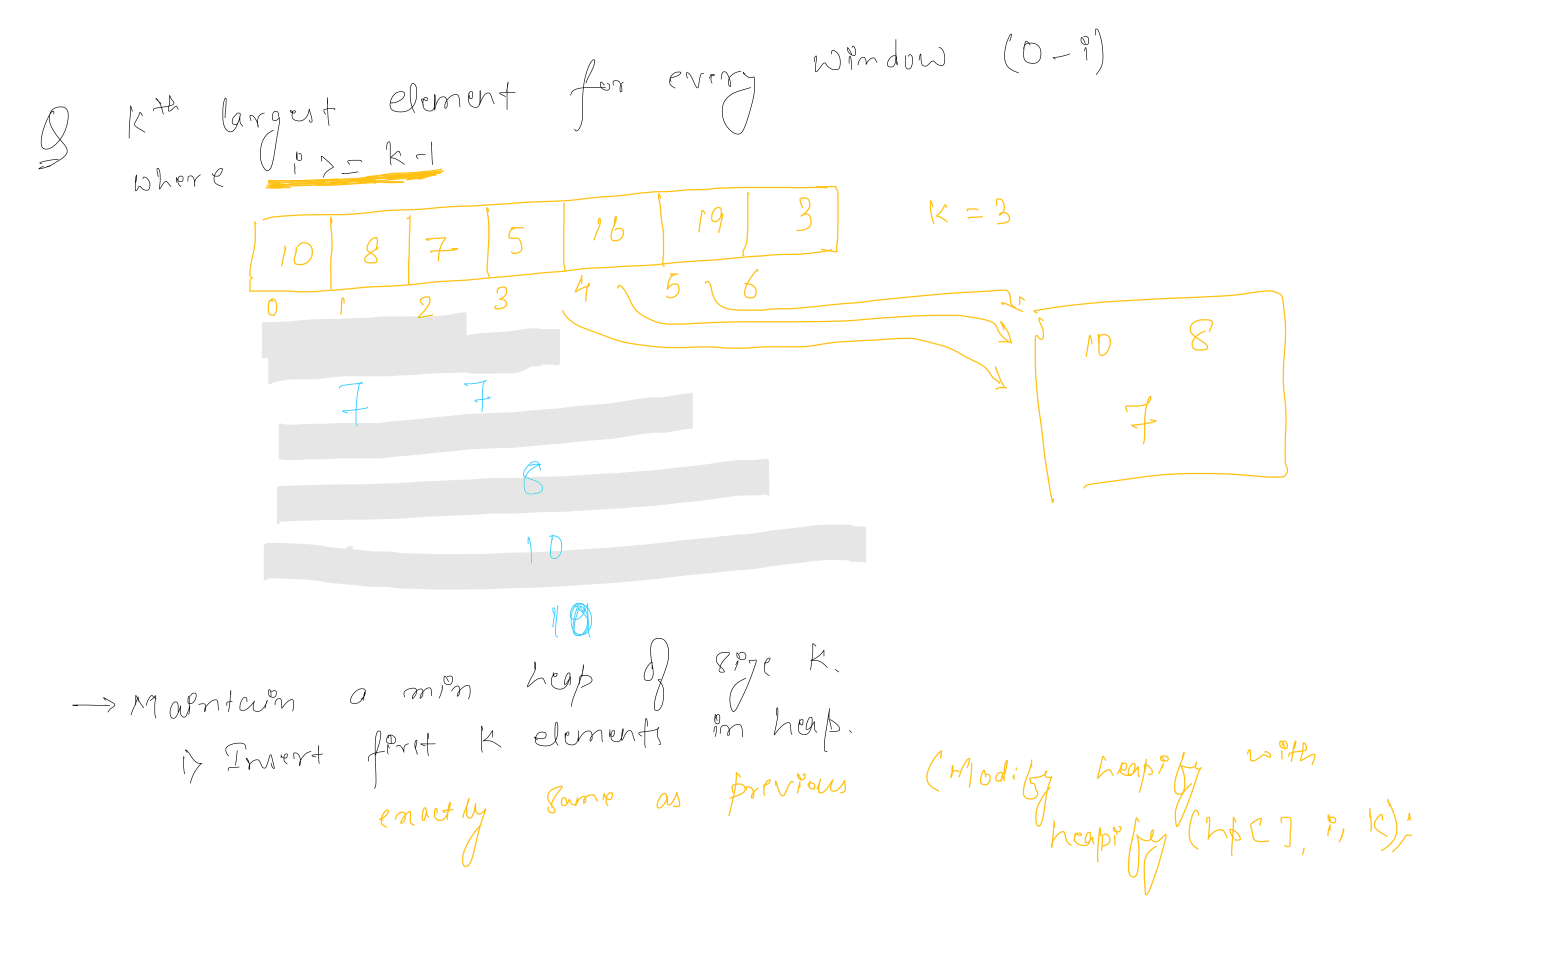 Q Kth largest element for every window (0-i)
where i >= k-1
10 8 7 5 16 19 3
K = 3
0 1 2 3 4 5 6
10 8
7
7 7
8
10
10
→ Maintain a min heap of size K.
1> Insert first K elements in heap.
exactly same as previous
(Modify heapify with
heapify (hp[], i, K);